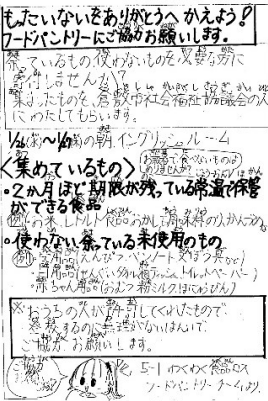 もったいないをありがとうへ かえよう!
フードパントリーにご協力お願いします。
余っているもの使わないものを必要な方に
寄付しませんか?
集まったものを、倉敷市社会福祉協議会の人
にわたしてもらいます。
1/26(水)~1/27(木)の朝 イングリッシュルーム
<集めているもの>
・2か月ほど期限が残っている常温で保管
ができる食品
例 お米、レトルト食品、おかし、調味料、のり、かんづめ
・使わない余っている未使用のもの
例
えんぴつ、ノート
せんざい、タオル、ティッシュ、トイレットペーパー
赤ちゃん用品(おむつ、粉ミルク
※おうちの人が許可してくれたもので
登校するのに無理がないはんいで
ご協力お願いします。
5-1 わくわく食品ロス
フードパントリーチームより